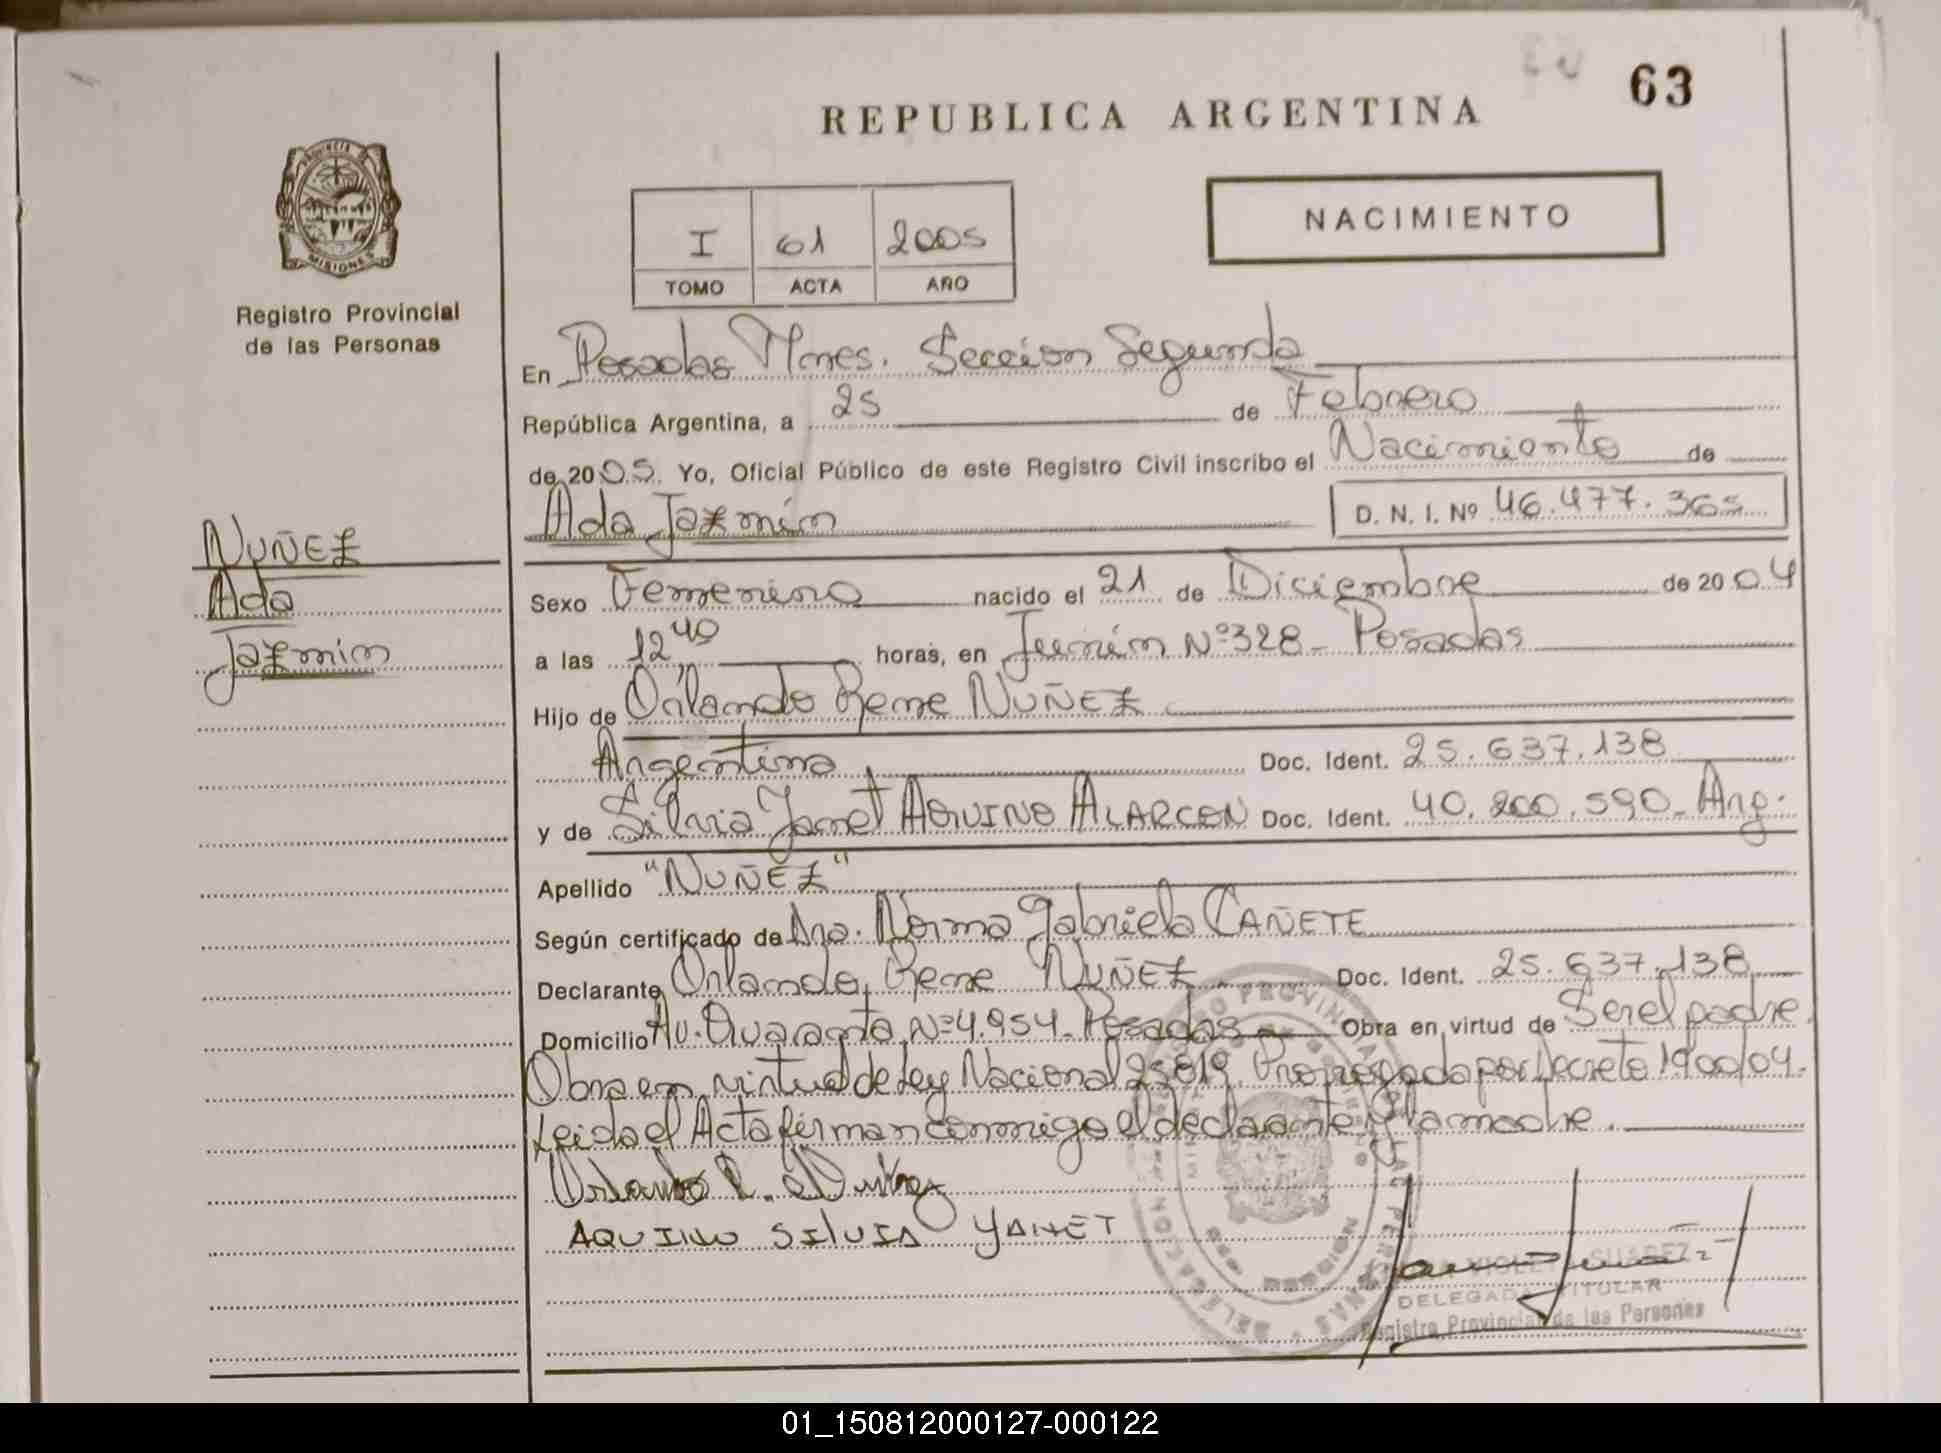 63
REPUBLICA ARGENTINA
PROVINCIA DE
MISIONES
Registro Provincial
de las Personas
I 61 2005
TOMO ACTA AÑO
NACIMIENTO
En Posadas Mnes. Sección Segunda
República Argentina, a 25 de Febrero
de 2005. Yo, Oficial Público de este Registro Civil inscribo el Nacimiento de
Ada Jazmín D. N. I. Nº 46.477.365
NUÑEZ
Ada
Jazmin
Sexo Femenino nacido el 21 de Diciembre de 2004
a las 12 40 horas, en Junín Nº 328 - Posadas
Hijo de Orlando Rene NUÑEZ
Argentina Doc. Ident. 25.637.138
y de Silvia Janet AQUINO ALARCON Doc. Ident. 40.200.590 - Arg.
Apellido "NUÑEZ"
Según certificado de Dra. Norma Gabriela CAÑETE
Declarante Orlando Rene NUÑEZ Doc. Ident. 25.637.138
Domicilio Av. Quaranta Nº 4.954 - Posadas - Obra en virtud de Ser el padre.
Obra en virtud de Ley Nacional 25819. Prorrogada por Decreto 1900/04.
Leida el Acta firman conmigo el declarante y la madre.
Orlando R. Nuñez
AQUINO SILVIA YANET
SUAREZ
DELEGADA TITULAR
Registro Provincial de las Personas
01_150812000127-000122